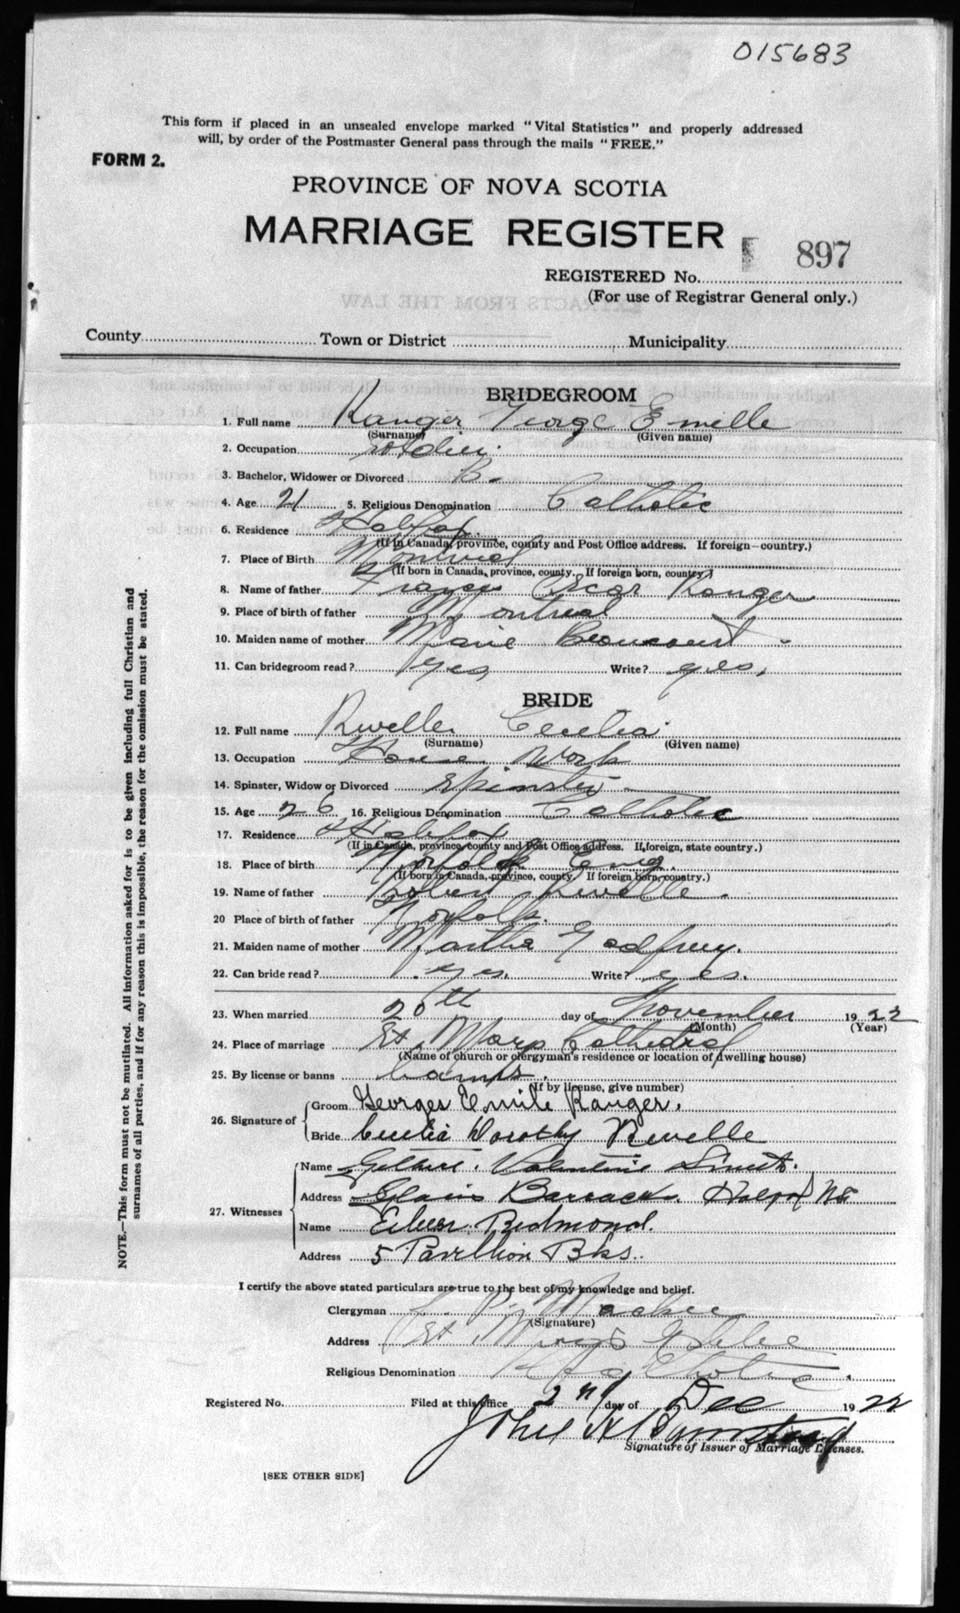 015683
This form if placed in an unsealed envelope marked "Vital Statistics" and properly addressed
will, by order of the Postmaster General pass through the mails "FREE."
FORM 2.
PROVINCE OF NOVA SCOTIA
MARRIAGE REGISTER
897
REGISTERED No.
(For use of Registrar General only.)
County Town or District Municipality
BRIDEGROOM
1. Full name Ranger George Emille
(Surname) (Given name)
2. Occupation Soldier.
3. Bachelor, Widower or Divorced B.
4. Age 21 5. Religious Denomination Catholic
6. Residence Halifax.
(If in Canada, province, county and Post Office address. If foreign—country.)
7. Place of Birth Montreal
(If born in Canada, province, county. If foreign born, country.)
8. Name of father Oscar Ranger
9. Place of birth of father Montreal
10. Maiden name of mother Marie
11. Can bridegroom read? yes Write? yes.
BRIDE
12. Full name Cecelia
(Surname) (Given name)
13. Occupation House Work
14. Spinster, Widow or Divorced Spinster
15. Age 26 16. Religious Denomination Catholic
17. Residence Halifax
(If in Canada, province, county and Post Office address. If foreign, state country.)
18. Place of birth Norfolk Eng.
(If born in Canada, province, county. If foreign born, country.)
19. Name of father Robert Rewelle.
20 Place of birth of father Norfolk.
21. Maiden name of mother Martha Godfrey.
22. Can bride read? yes. Write? yes.
23. When married 20th day of November 1922
(Month) (Year)
24. Place of marriage St Marys Cathedral
(Name of church or clergyman's residence or location of dwelling house)
25. By license or banns banns.
(If by license, give number)
26. Signature of
Groom Georges Emile Ranger.
Bride Cecelia Dorothy Rewelle
27. Witnesses
Name Gilbert. Valentine
Address Barracks. Halifax NS
Name Eileen Redmond.
Address 5 Pavillion Bks.
I certify the above stated particulars are true to the best of my knowledge and belief.
Clergyman
(Signature)
Address St Marys Glebe
Religious Denomination R Catholic.
Registered No. Filed at this office 2nd day of Dec 1922
John H Barnstead
Signature of Issuer of Marriage Licenses.
[SEE OTHER SIDE]
NOTE.—This form must not be mutilated. All information asked for is to be given including full Christian and
surnames of all parties, and if for any reason this is impossible, the reason for the omission must be stated.